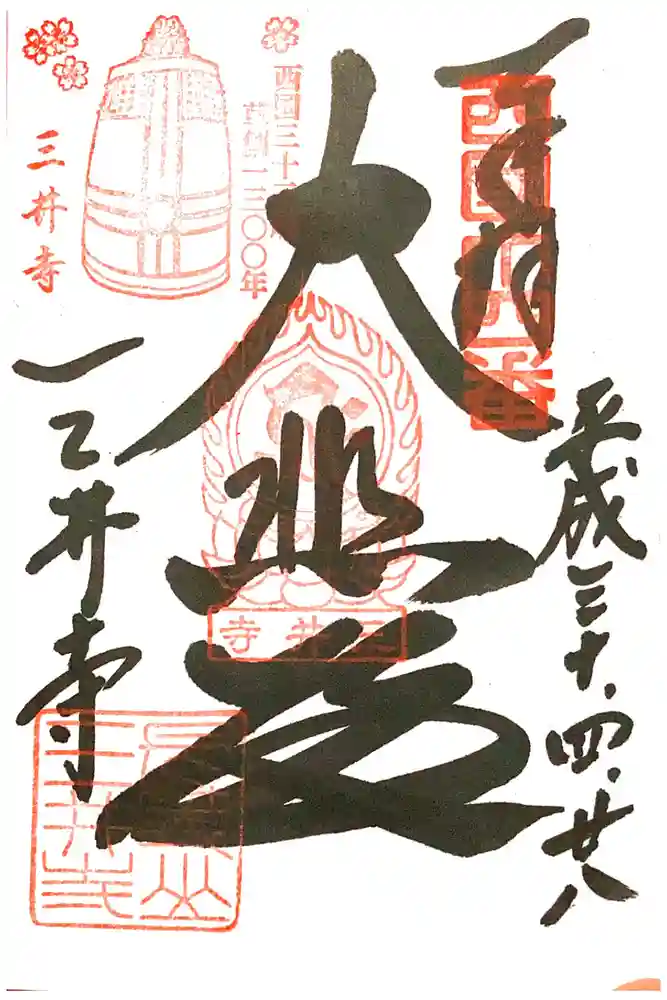 奉拝
西国十四番
平成三十.四.廿八
西国三十三所
草創一三〇〇年
大悲
三井寺
三井寺
三井寺
三井寺